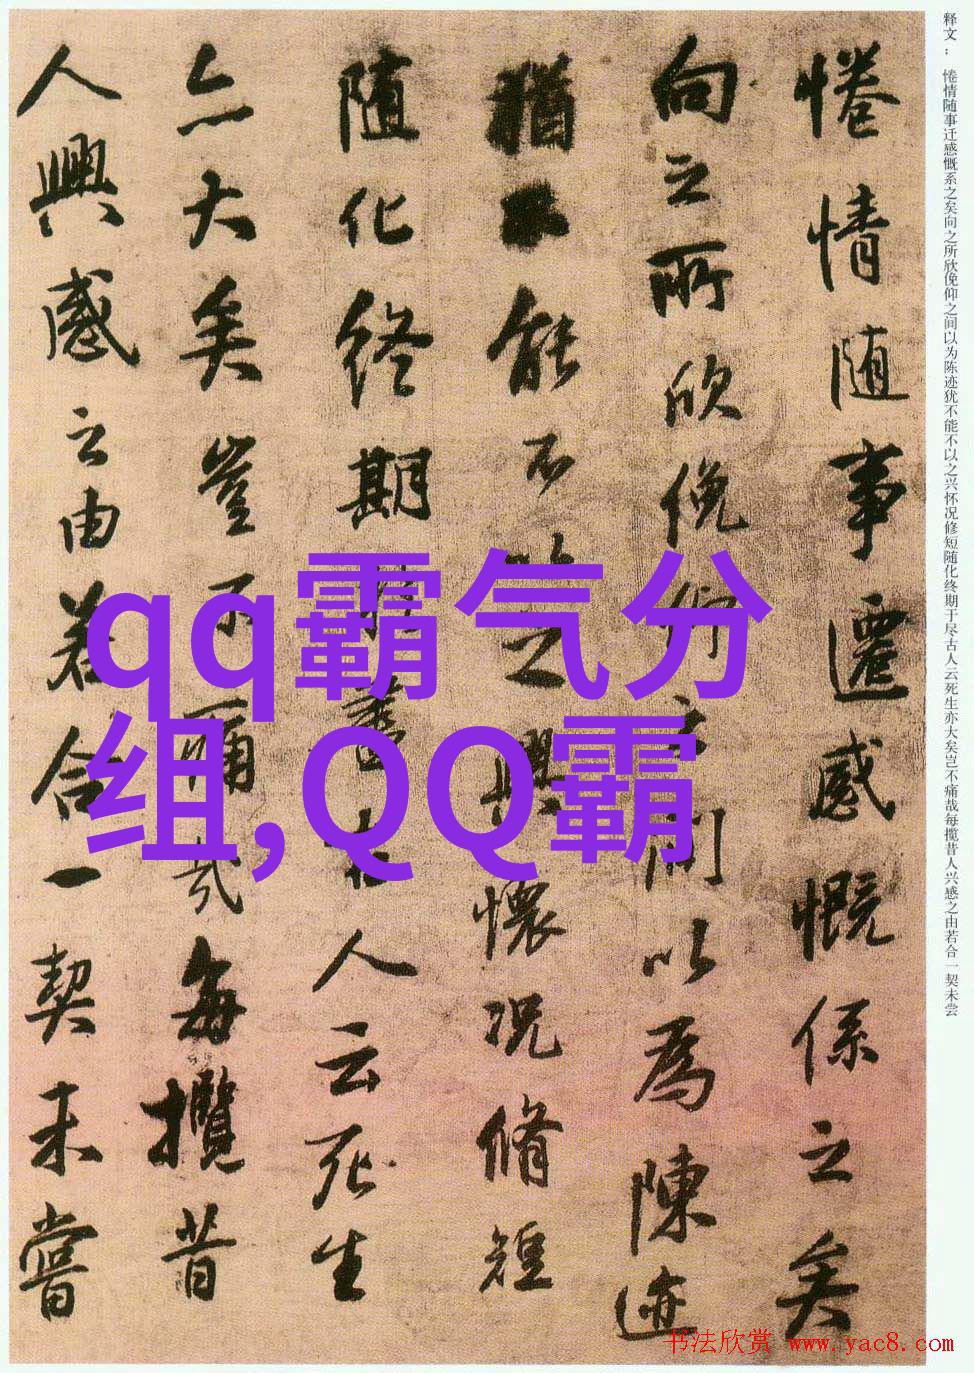 释文： 惓情随事迁感慨系之矣向之所欣俛仰之间以为陈迹犹不能不以之兴怀况修短随化终期于尽古人云死生亦大矣岂不痛哉每揽昔人兴感之由若合一契未尝
惓情随事遷感慨係之矣
向之所欣俛仰之間以為陳迹
猶不能不以之興懷況脩短
随化終期於盡古人云死生
亦大矣豈不痛哉每攬昔
人興感之由若合一契未嘗
qq霸气分
组,QQ霸
书法欣赏 www.yac8.com